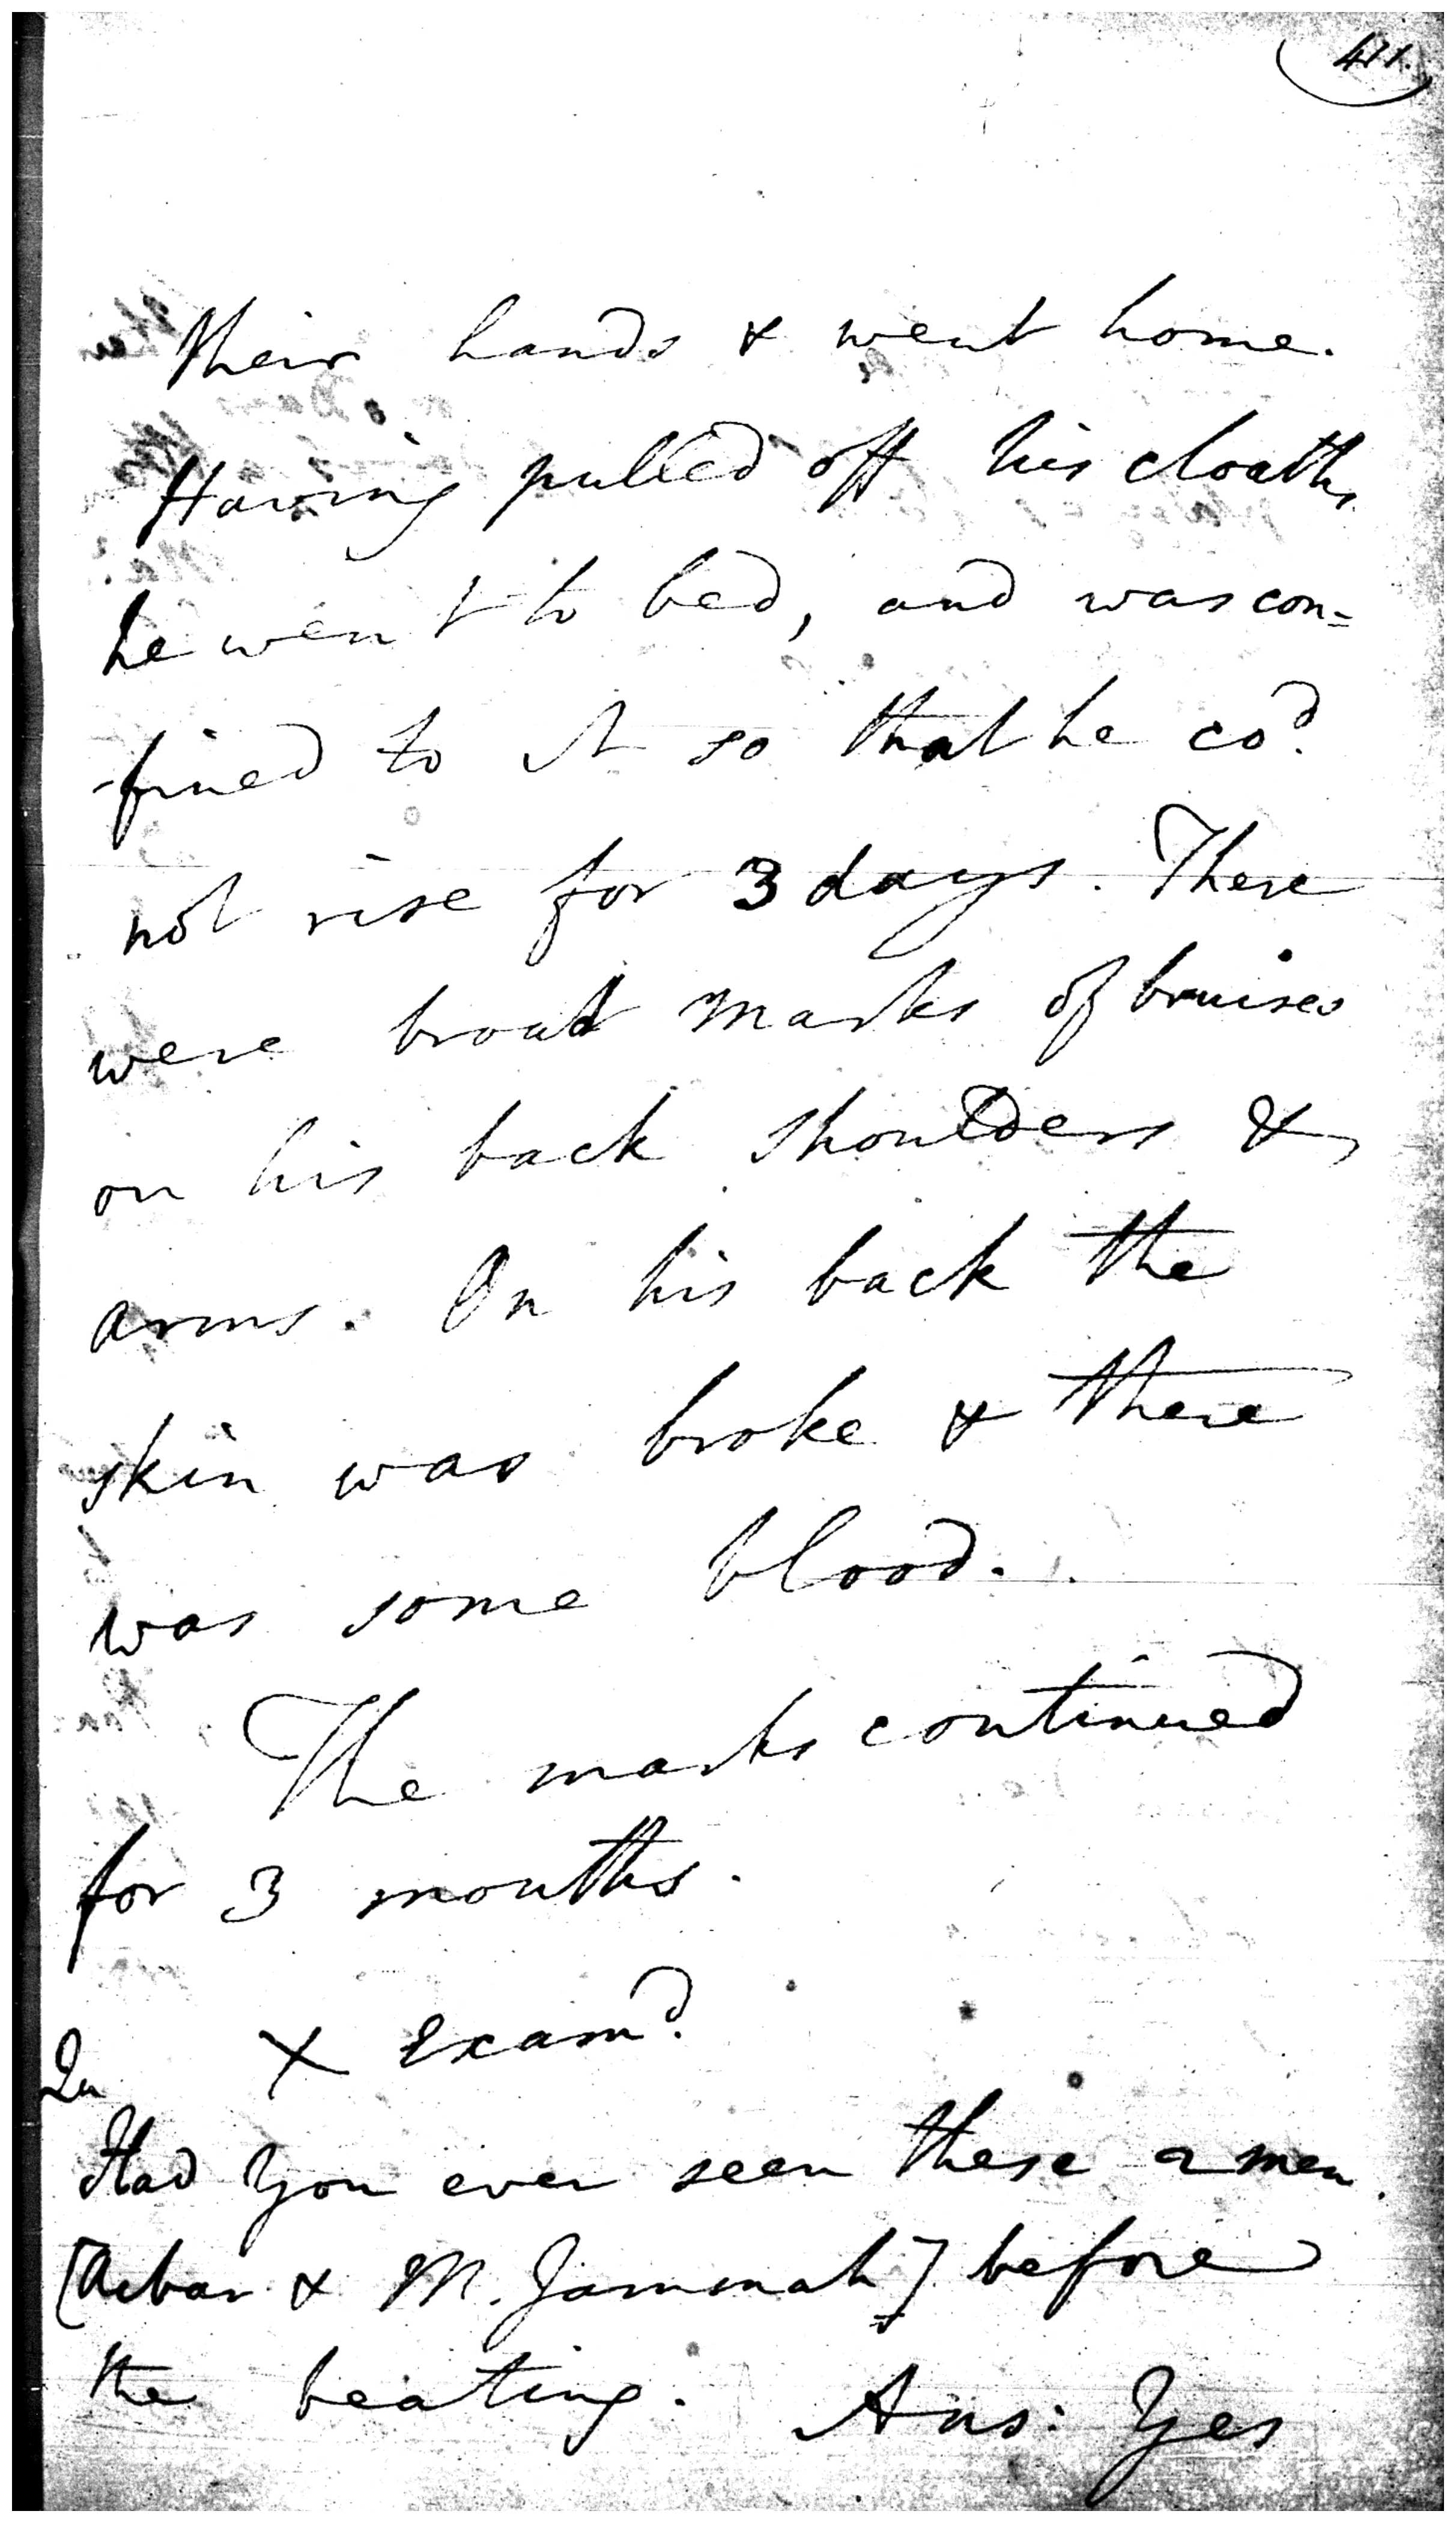 471.
their hands & went home.
Having pulled off his cloaths
he went to bed, and was con=
-fined to it so that he cod.
not rise for 3 days. There
were broad marks of bruises
on his back shoulders &
arms. On his back the
skin was broke & there
was some blood.
The marks continued
for 3 months.
X Examd.
Qu
Had you ever seen these 2 men
[Acbar & M. Jammah] before
the beating. Ans: Yes